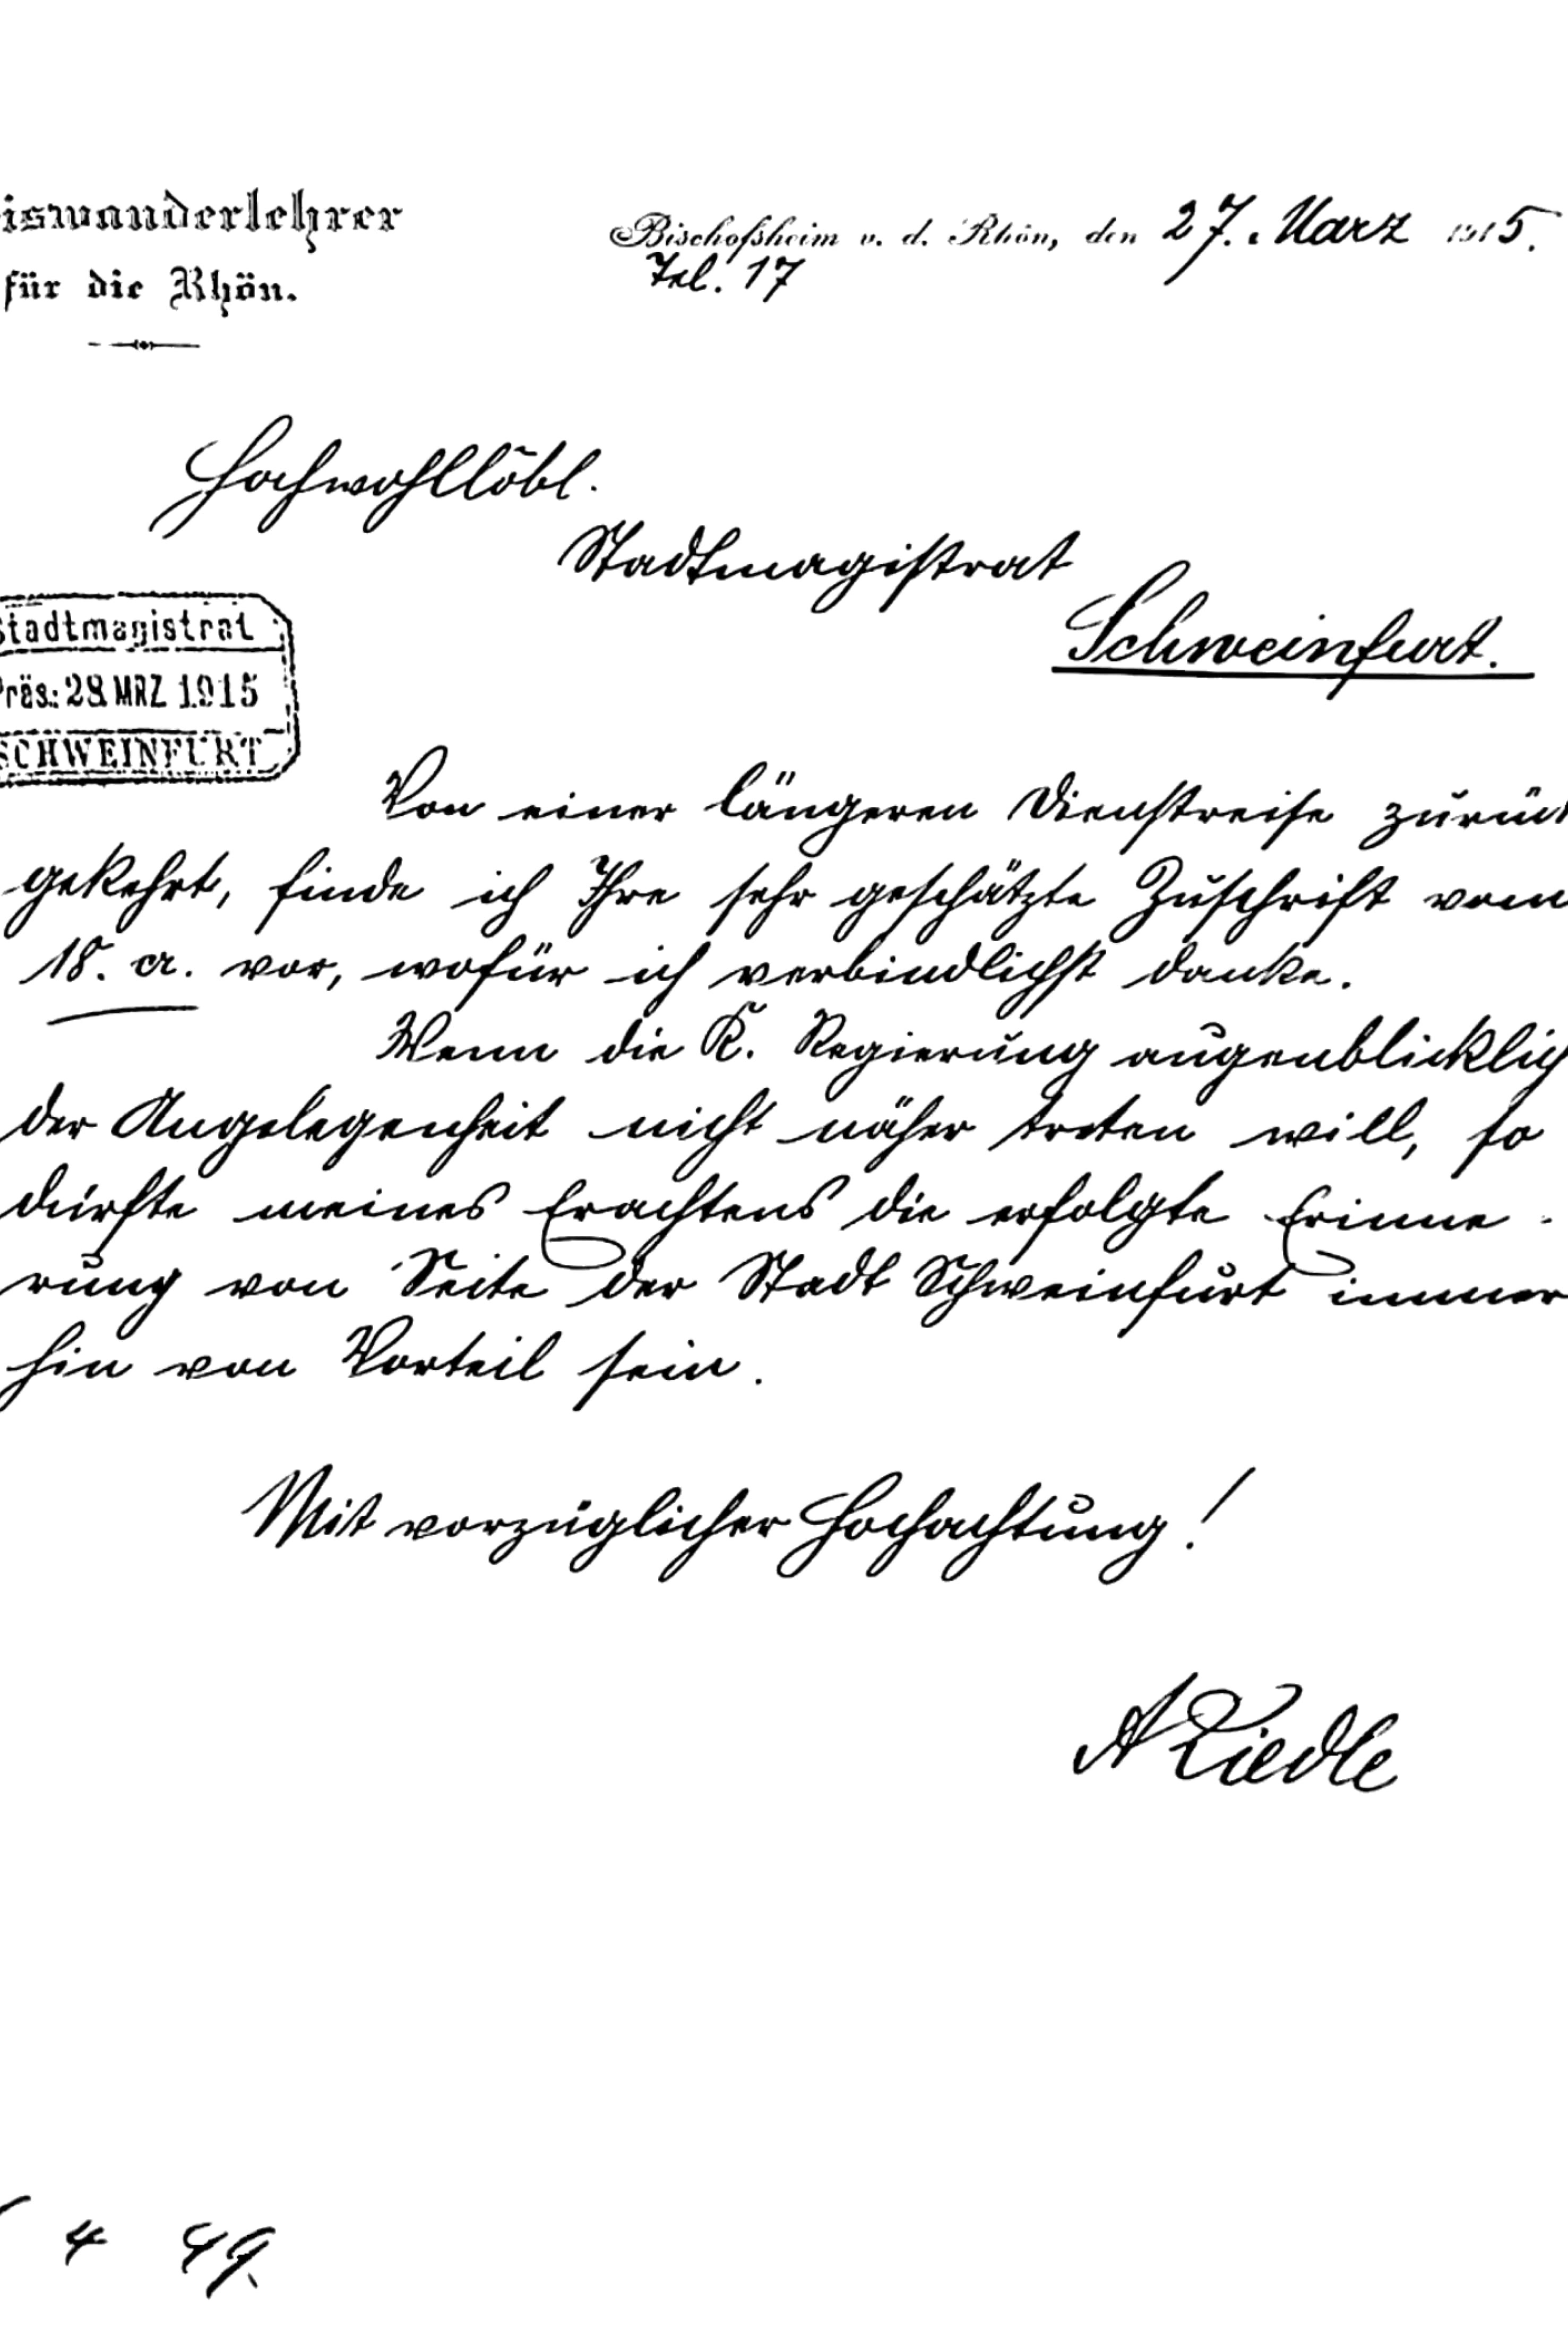 iswanderlehrer
für die Rhön.
Bischofsheim v. d. Rhön, den 27. März 1915.
Tel. 17
Hochwohllöbl.
Stadtmagistrat
Schweinfurt.
Stadtmagistrat
Präs: 28 MRZ 1915
SCHWEINFURT
Von einer längeren Dienstreise zurück
gekehrt, finde ich Ihre sehr geschätzte Zuschrift vom
18. cr. vor, wofür ich verbindlichst danke.
Wenn die K. Regierung augenblicklich
der Angelegenheit nicht näher treten will, so
dürfte meines Erachtens die erfolgte Erinne-
rung von Seite der Stadt Schweinfurt immer
hin von Vorteil sein.
Mit vorzüglicher Hochachtung!
A Riedle
4 49.